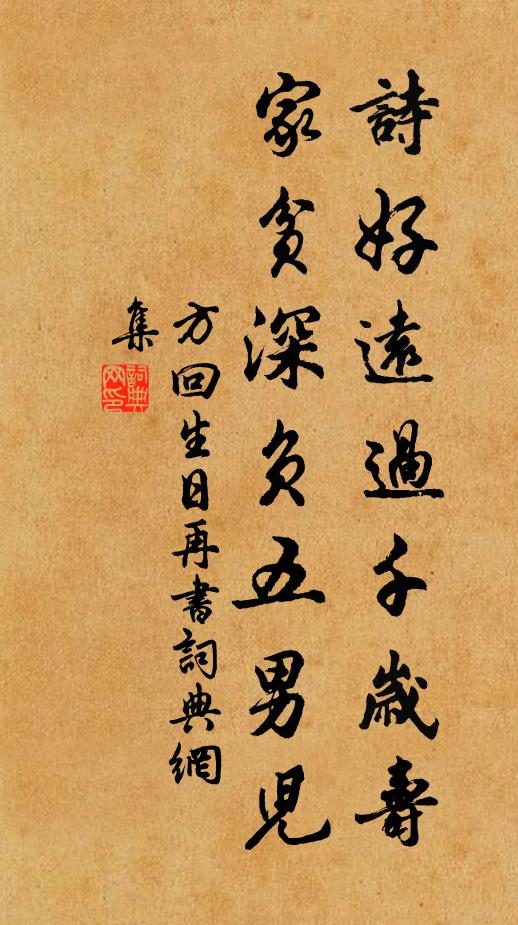 詩好遠過千歲壽
家貧深負五男兒
方回生日再書詞典網
集
詞典網印